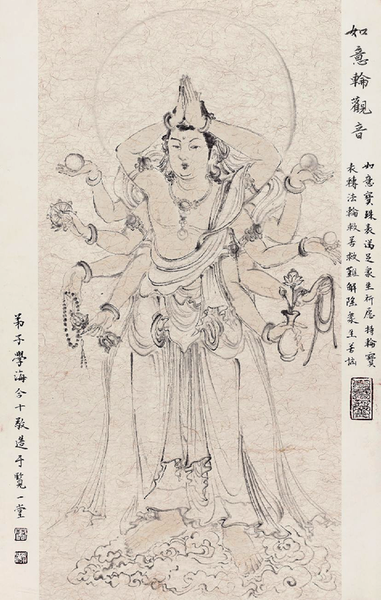 如意輪觀音
如意寶珠表滿足衆生祈愿持輪寶
表轉法輪救苦救難解除衆生苦惱
弟子學海合十敬造于覽一堂